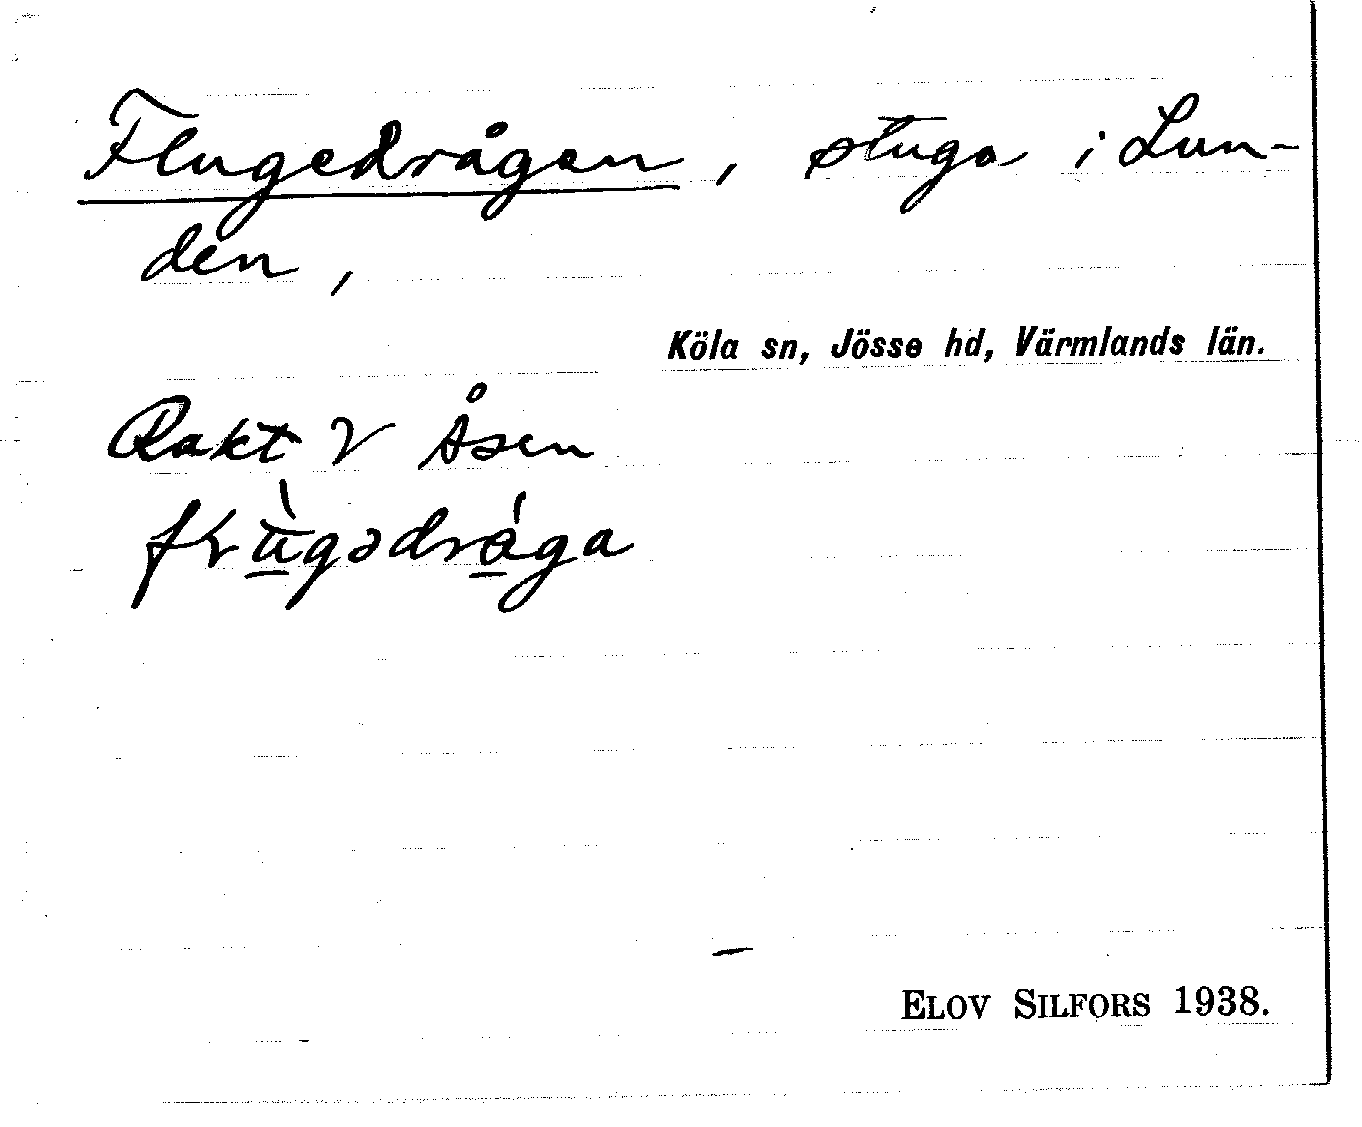 Flugedrågen, stuga i Lun-
den,
Köla sn, Jösse hd, Värmlands län.
Rakt V Åsen
ELOV SILFORS 1938.